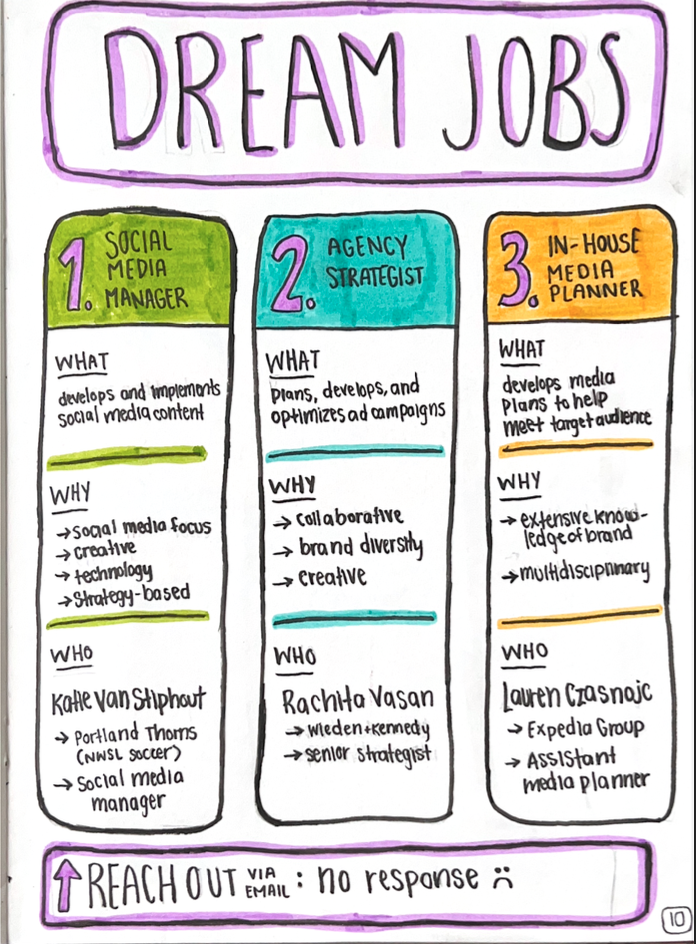 DREAM JOBS
1. SOCIAL
MEDIA
MANAGER
WHAT
develops and implements
social media content
WHY
→ social media focus
→ creative
→ technology
→ strategy-based
WHO
Katie Van Stiphout
→ Portland Thorns
(NWSL soccer)
→ Social media
manager
2. AGENCY
STRATEGIST
WHAT
plans, develops, and
optimizes ad campaigns
WHY
→ collaborative
→ brand diversity
→ creative
WHO
Rachita Vasan
→ Wieden+Kennedy
→ senior strategist
3. IN-HOUSE
MEDIA
PLANNER
WHAT
develops media
plans to help
meet target audience
WHY
→ extensive know-
ledge of brand
→ multidisciplinary
WHO
Lauren Czasnojc
→ Expedia Group
→ Assistant
media planner
↑ REACH OUT VIA EMAIL: no response :(
10